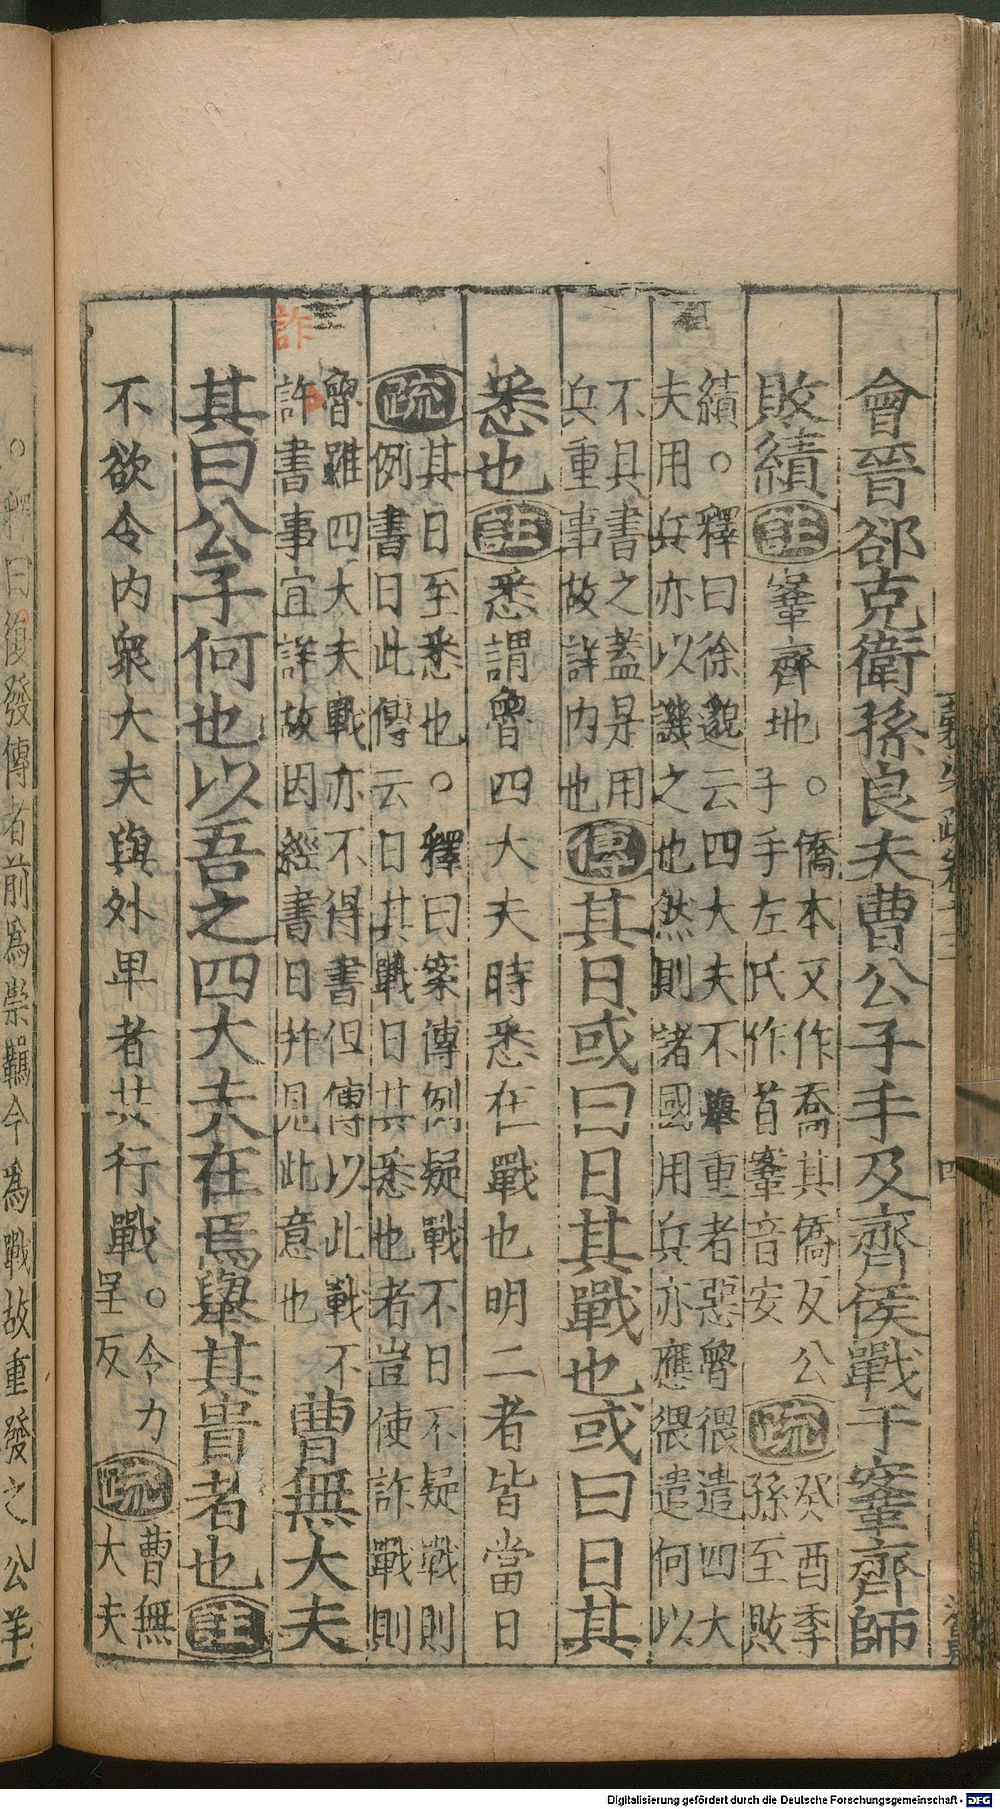 會晉郤克衛孫良夫曹公子手及齊侯戰于鞌齊師
敗績
註
鞌齊地。
僑本又作喬其僑反公
子手左氏作首鞌音安
疏
癸酉季
孫至敗
績。釋曰徐邈云四大夫不舉重者惡魯猥遣四大
夫用兵亦以譏之也然則諸國用兵亦應猥遣何以
不具書之蓋是用
兵重事故詳內也
傳
其日或曰日其戰也或曰日其
悉也
註
悉謂魯四大夫時悉在戰也明二者皆當日
疏
其日至悉也。釋曰案傳例疑戰不日不疑戰則
例書日此傳云日其戰日其悉也者豈使詐戰則
魯雖四大夫戰亦不得書但傳以此戰不
許書事宜詳故因經書日并見此意也
詐
曹無大夫
其曰公子何也以吾之四大夫在焉舉其貴者也
註
不欲令內衆大夫與外卑者共行戰
。令力
呈反
疏
曹無
大夫
四
。釋曰復發傳者前爲崇羈今爲戰故重發之公羊
Digitalisierung gefördert durch die Deutsche Forschungsgemeinschaft - DFG